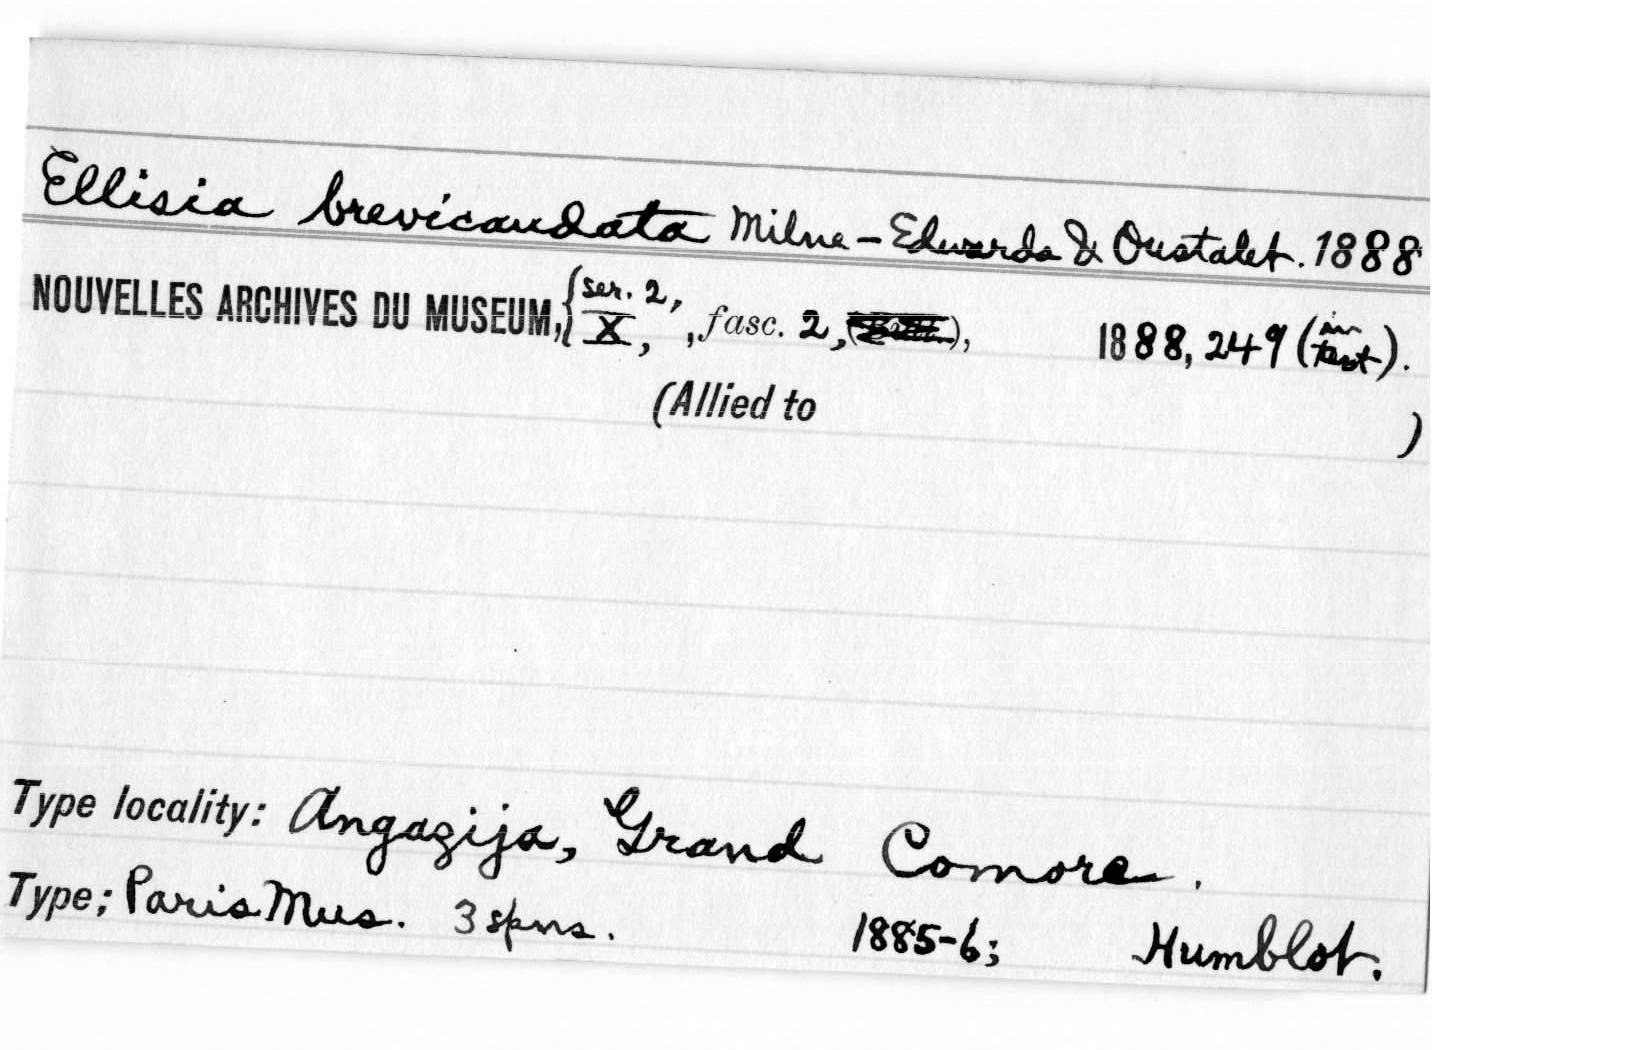 Ellisia brevicaudata Milne-Edwards & Oustalet. 1888
NOUVELLES ARCHIVES DU MUSEUM, { ser. 2, X, , fasc. 2, ( ), 1888, 249 (in text).
(Allied to )
Type locality: Angazija, Grand Comore.
Type; Paris Mus. 3 spms. 1885-6; Humblot.